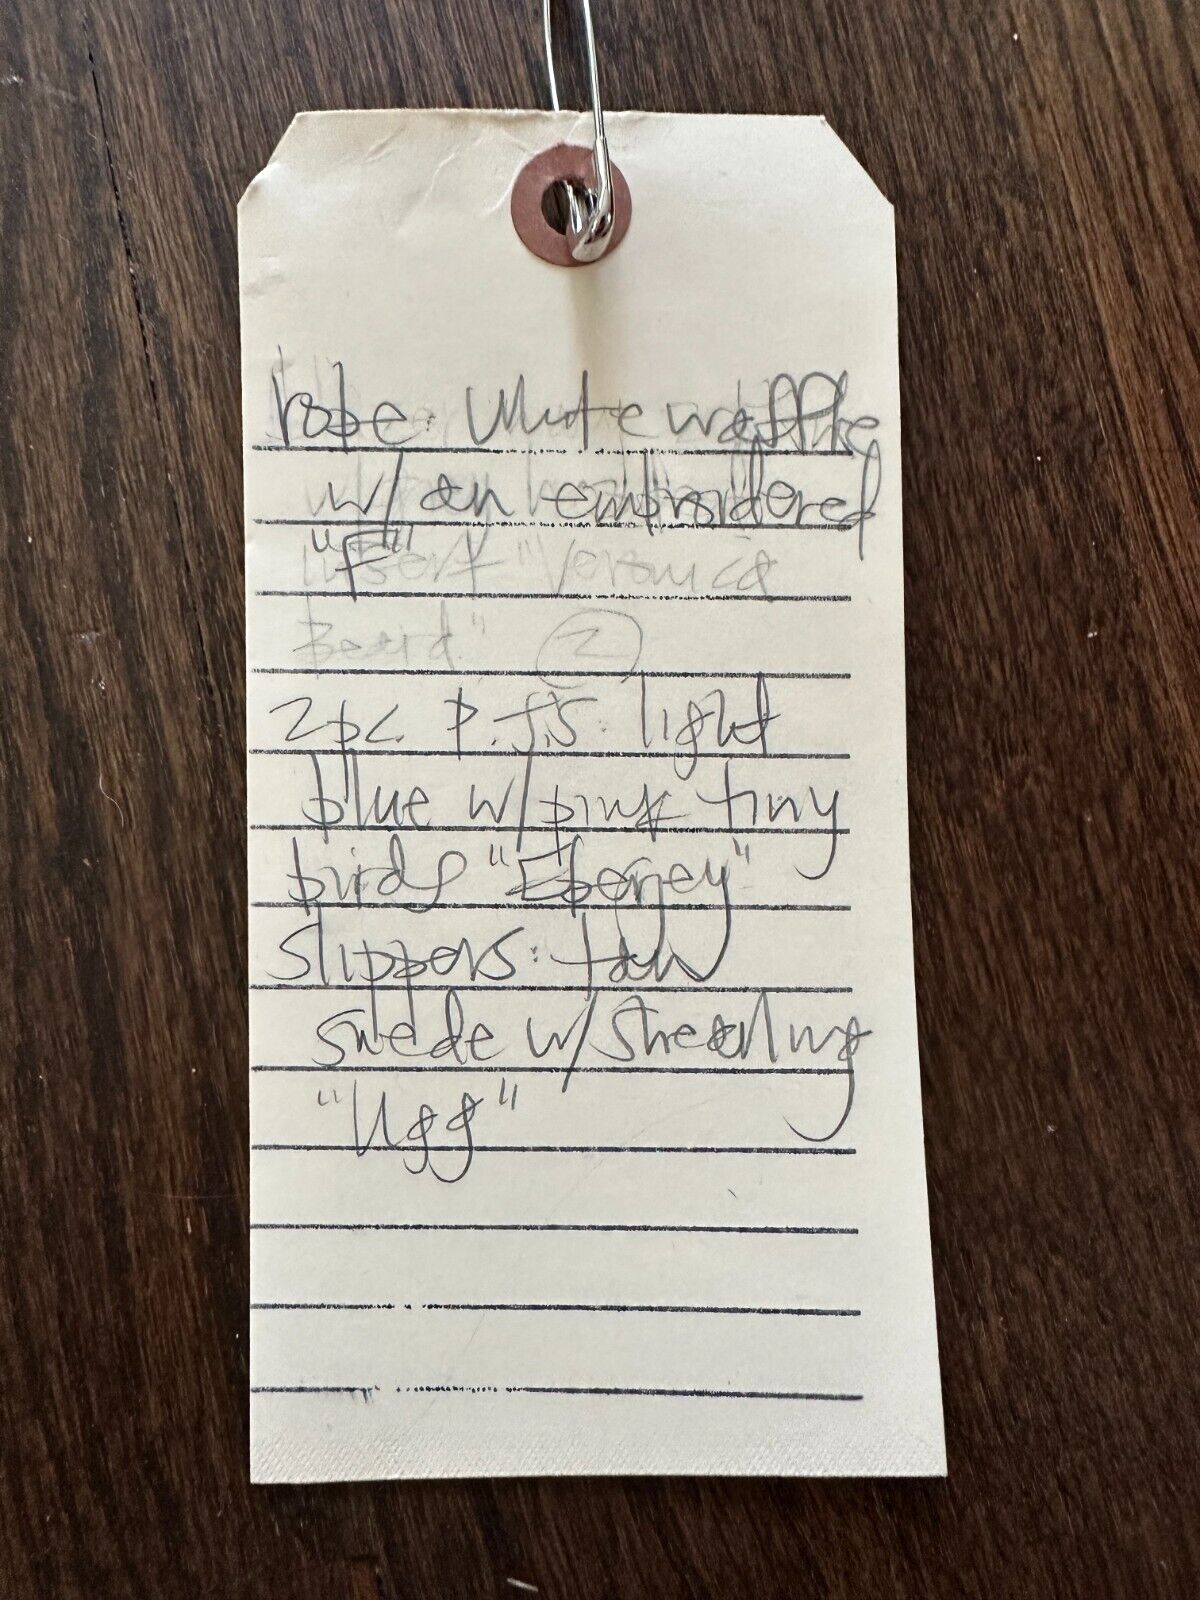 robe: White waffle
w/ an embroidered
"F"
insert "Veronica
Beard" 2
2pc. P.J.S: light
blue w/ pink tiny
birds "Eberjey"
slippers: tan
suede w/ shearling
"Ugg"